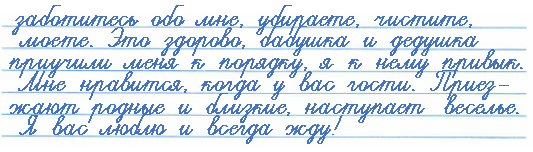 заботитесь обо мне, убираете, чистите,
моете. Это здорово, бабушка и дедушка
приучили меня к порядку, я к нему привык.
Мне нравится, когда у вас гости. Приез-
жают родные и близкие, наступает веселье.
Я вас люблю и всегда жду!